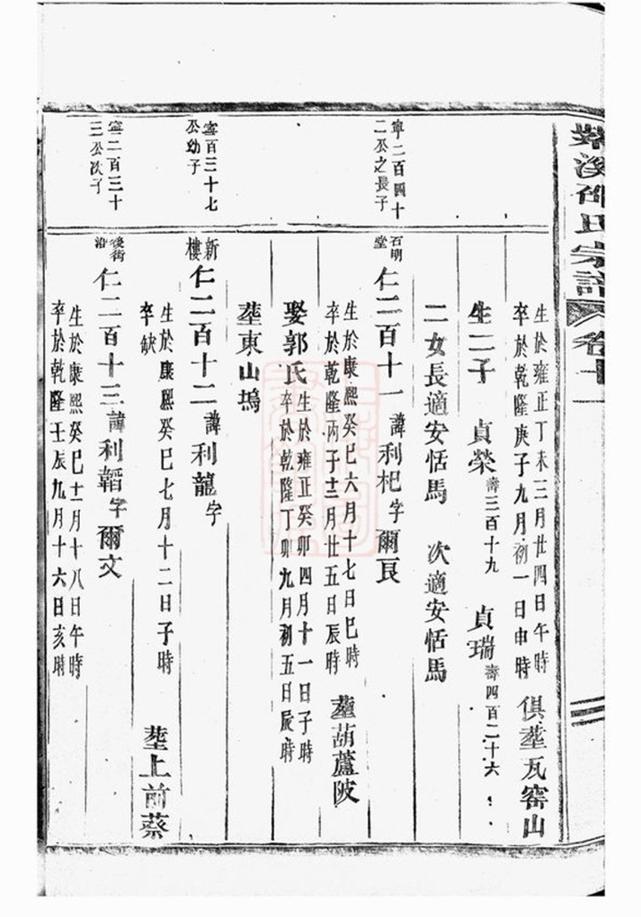 紫溪邵氏宗譜 卷十一
生於雍正丁未三月廿四日午時
卒於乾隆庚子九月初一日申時
俱塟瓦窑山
生二子 貞榮壽三百十九 貞瑞壽四百二十六
二女長適安恬馬 次適安恬馬
寧二百四十
二公之長子
石明堂
仁二百十一諱利杞字爾艮
生於康熙癸巳六月十七日巳時
卒於乾隆丙子十二月廿五日辰時
塟葫蘆陂
娶郭氏
生於雍正癸卯四月十一日子時
卒於乾隆丁卯九月初五日辰時
塟東山塢
寧百三十七
公幼子
新樓
仁二百十二諱利龍字
生於康熙癸巳七月十二日子時
卒缺
塟上前蔡
寧二百三十
三公次子
後街沿
仁二百十三諱利韜字爾文
生於康熙癸巳十一月十八日午時
卒於乾隆壬辰九月十六日亥時